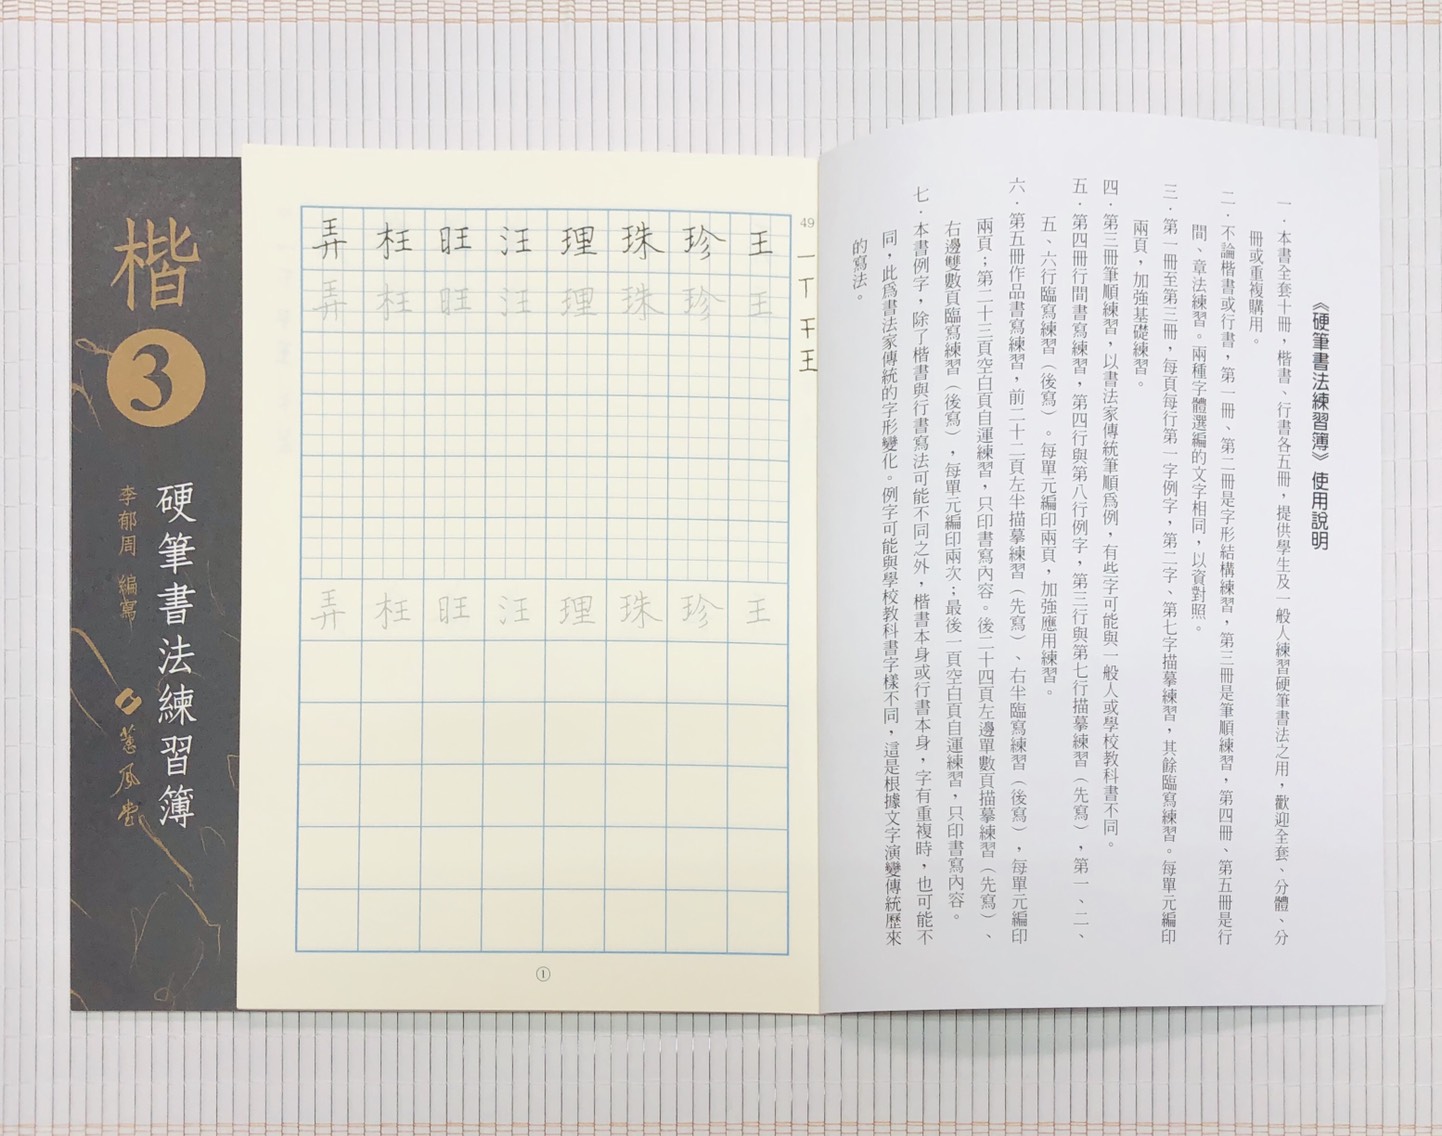 《硬筆書法練習簿》使用說明
一．本書全套十冊，楷書、行書各五冊，提供學生及一般人練習硬筆書法之用，歡迎全套、分體、分
冊或重複購用。
二．不論楷書或行書，第一冊、第二冊是字形結構練習，第三冊是筆順練習，第四冊、第五冊是行
間、章法練習。兩種字體選編的文字相同，以資對照。
三．第一冊至第三冊，每頁每行第一字例字，第二字、第七字描摹練習，其餘臨寫練習。每單元編印
兩頁，加強基礎練習。
四．第三冊筆順練習，以書法家傳統筆順爲例，有些字可能與一般人或學校教科書不同。
五．第四冊行間書寫練習，第四行與第八行例字，第三行與第七行描摹練習（先寫），第一、二、
五、六行臨寫練習（後寫）。每單元編印兩頁，加強應用練習。
六．第五冊作品書寫練習，前二十二頁左半描摹練習（先寫）、右半臨寫練習（後寫），每單元編印
兩頁；第二十三頁空白頁自運練習，只印書寫內容。後二十四頁左邊單數頁描摹練習（先寫）、
右邊雙數頁臨寫練習（後寫），每單元編印兩次；最後一頁空白頁自運練習，只印書寫內容。
七．本書例字，除了楷書與行書寫法可能不同之外，楷書本身或行書本身，字有重複時，也可能不
同，此爲書法家傳統的字形變化。例字可能與學校教科書字樣不同，這是根據文字演變傳統歷來
的寫法。
49
一丅干王
王王王
珍珍珍
珠珠珠
理理理
汪汪汪
旺旺旺
枉枉枉
弄弄弄
①
楷
3
硬筆書法練習簿
李郁周 編寫
蕙風堂